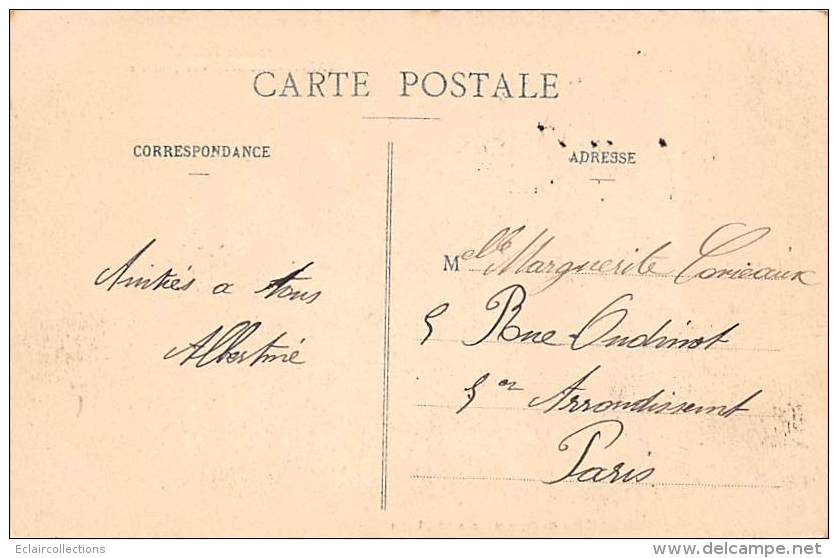 CARTE POSTALE
CORRESPONDANCE
ADRESSE
Amitiés a tous
Albertine
Melle Marguerite
5 Rue Oudinot
Arrondissemt
Paris
Eclaircollections
©delcampe.net